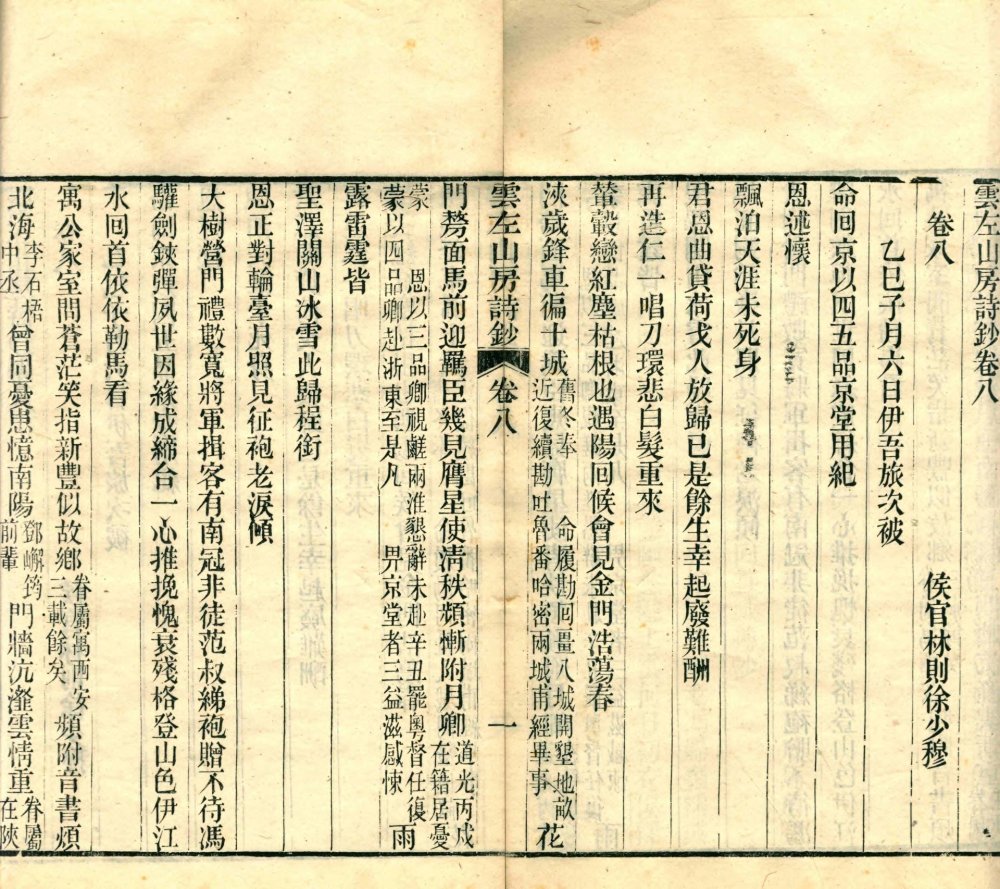 雲左山房詩鈔卷八
卷八 侯官林則徐少穆
乙巳子月六日伊吾旅次被
命回京以四五品京堂用紀
恩述懷
飄泊天涯未死身
君恩曲貸荷戈人放歸已是餘生幸起廢難酬
再造仁一唱刀環悲白髮重來
輦轂戀紅塵枯根也遇陽回候會見金門浩蕩春
浹歲鋒車徧十城舊冬奉 命履勘回疆八城開墾地畝近復續勘吐魯番哈密兩城甫經畢事花
雲左山房詩鈔 卷八 一
門剺面馬前迎羈臣幾見膺星使清秩頻慚附月卿道光丙戌在籍居憂
蒙 恩以三品卿視鹺兩淮懇辭未赴辛丑罷粵督任復蒙以四品卿赴浙東至是凡 畀京堂者三益滋感悚雨
露雷霆皆
聖澤關山冰雪此歸程銜
恩正對輪臺月照見征袍老淚傾
大樹營門禮數寬將軍揖客有南冠非徒范叔綈袍贈不待馮
驩劍鋏彈夙世因緣成締合一心推挽愧衰殘格登山色伊江
水回首依依勒馬看
寓公家室問蒼茫笑指新豐似故鄉眷屬寓西安三載餘矣頻附音書煩
北海李石梧中丞曾同憂患憶南陽鄧嶰筠前輩門牆沆瀣雲情重眷屬在陝